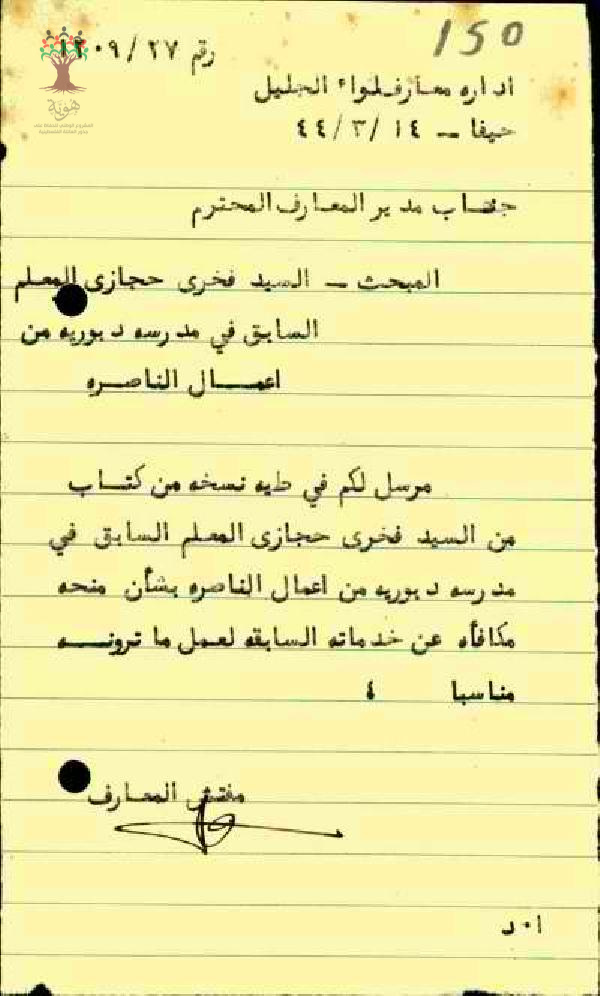 150
رقم ٢٧/ ١٢٠٩
هوية
اداره معارف لواء الجليل
حيفا - ١٤ /٣ /٤٤
جناب مدير المعارف المحترم
المبحث - السيد فخرى حجازى المعلم
السابق في مدرسه دبوريه من
اعمال الناصره
مرسل لكم في طيه نسخه من كتاب
من السيد فخرى حجازى المعلم السابق في
مدرسه دبوريه من اعمال الناصره بشأن منحه
مكافأه عن خدماته السابقه لعمل ما ترونه
مناسبا ٤
مفتش المعارف
ا٠د